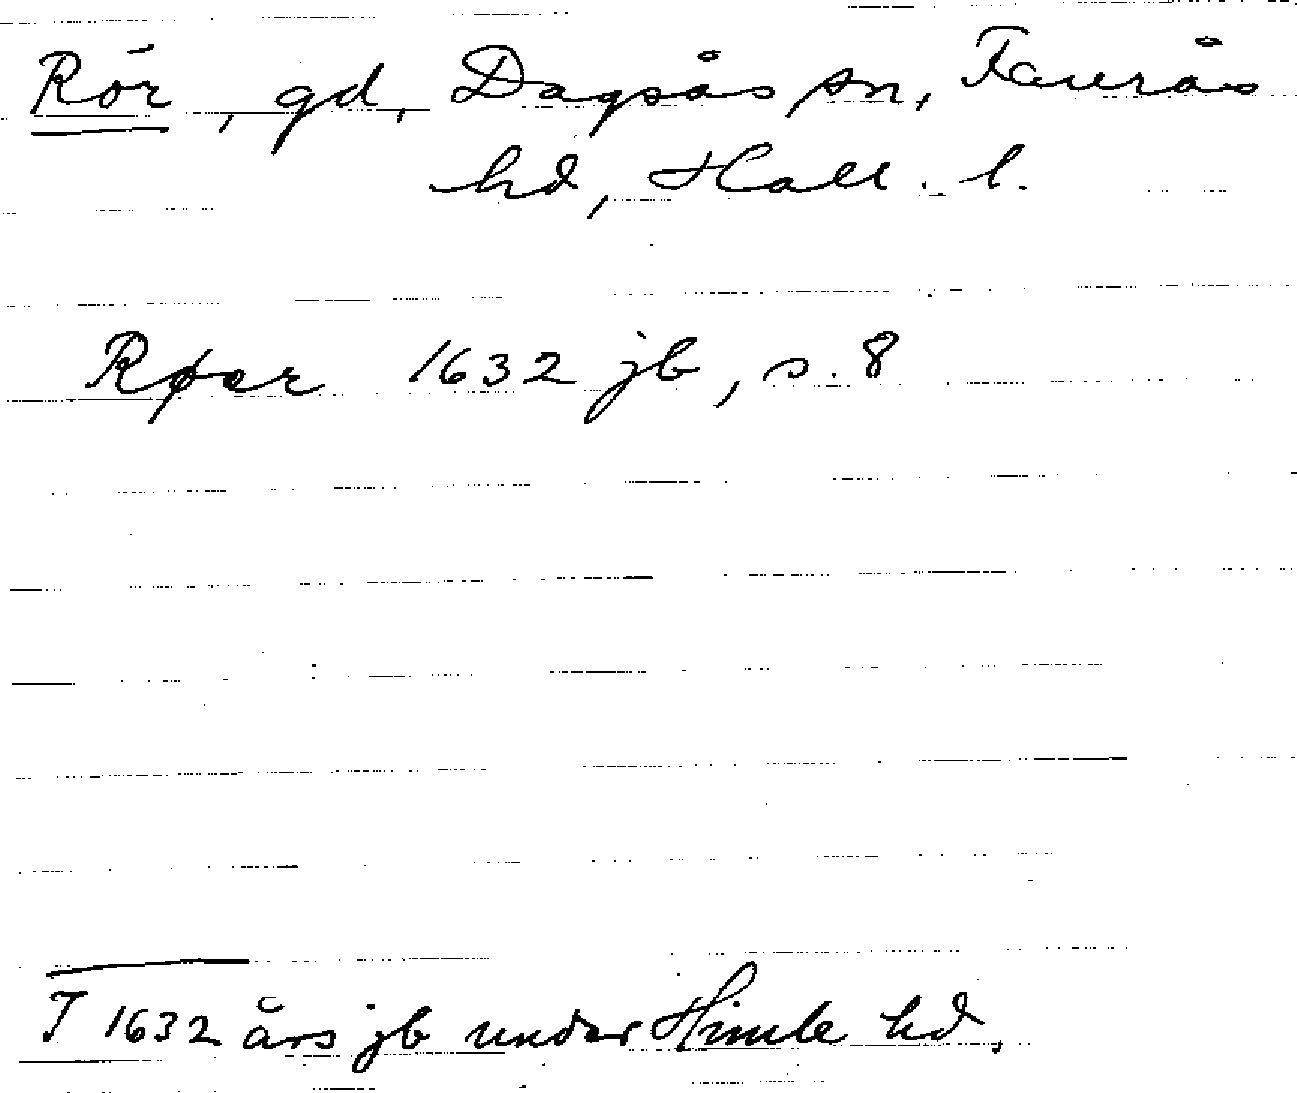 Rör, gd, Dagsås sn, Faurås
hd, Hall. l.
Røer 1632 jb, s. 8
I 1632 års jb under Himle hd.